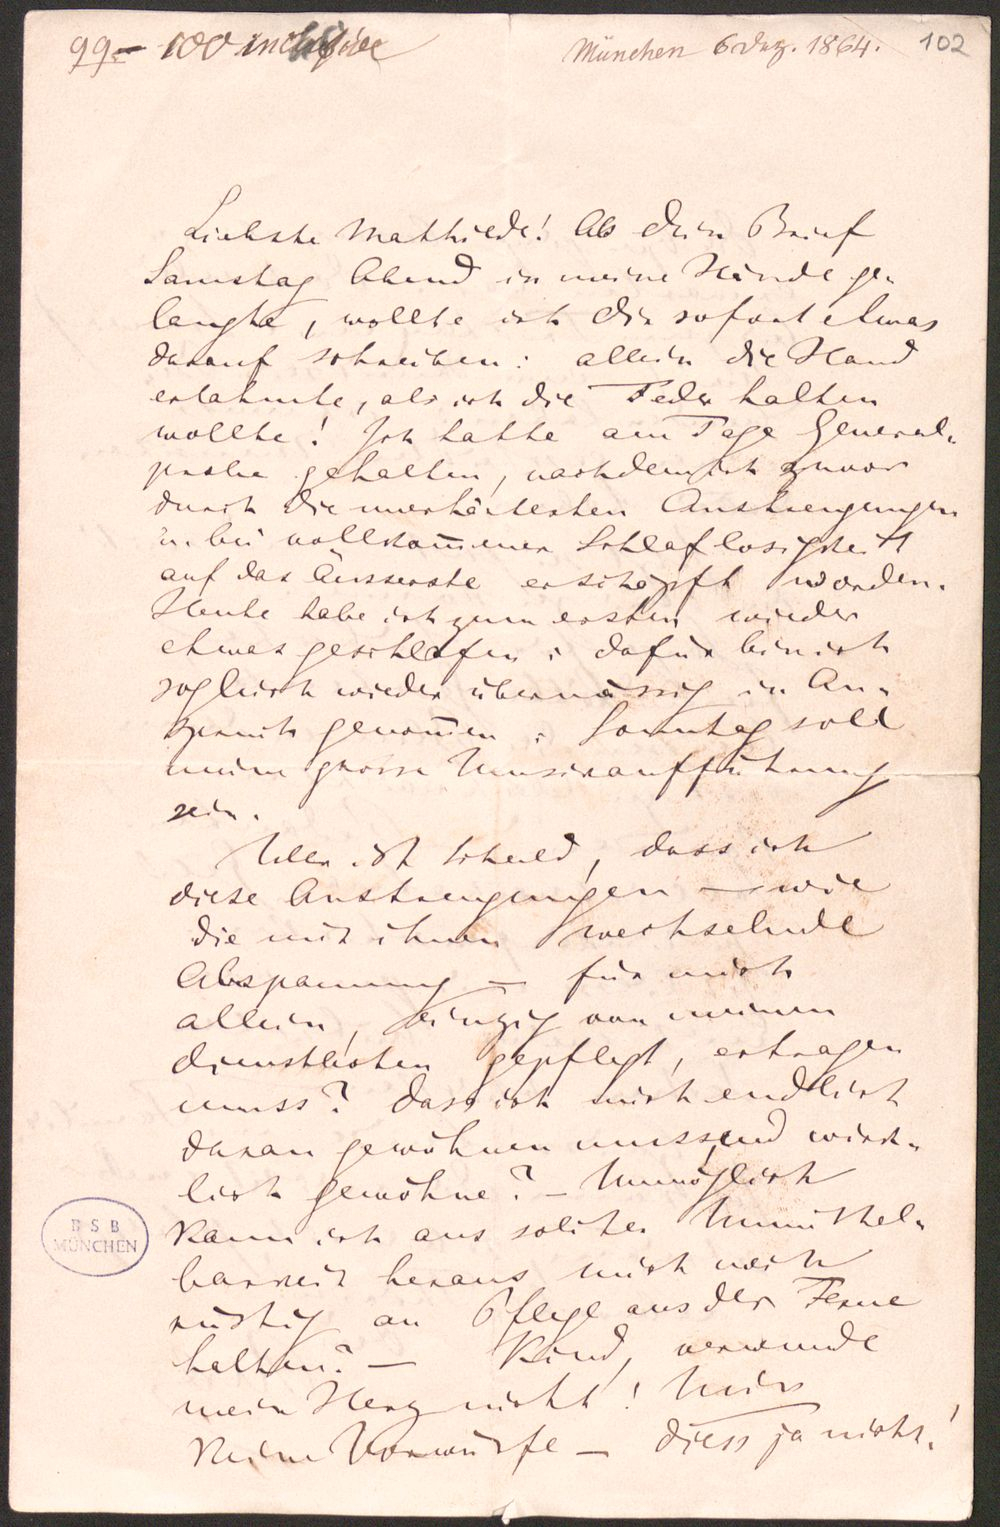 99 - 100 inclusive
München 6 Dez. 1864.
102
Liebste Mathilde! Als dein Brief
Samstag Abend in meine Hände ge-
langte, wollte ich dir sofort etwas
darauf schreiben: allein die Hand
erlahmte, als ich die Feder halten
wollte! Ich hatte am Tage General-
probe gehalten, nachdem ich zuvor
durch die unerhörtesten Anstrengungen
u. bei vollkom̅ener Schlaflosigkeit
auf das Äusserste erschöpft worden.
Heute habe ich zum ersten wieder
etwas geschlafen: dafür bin ich
sogleich wieder übermässig in An-
spruch genom̅en: Sonntag soll
meine grosse Musikaufführung
sein.
Wer ist Schuld, dass ich
diese Anstrengungen — wie
die mit ihnen wechselnde
Abspannung — für mich
allein, einzig von meinen
Dienstboten gepflegt, ertragen
muss? Dass ich mich endlich
daran gewöhnen muss, und wirk-
lich gewöhne? — Unmöglich
kann ich aus solcher Unmittel-
barkeit heraus mich noch
rüstig an Pflege aus der Ferne
halten? — Kind, verwunde
mein Herz nicht! Mir
keine Vorwürfe — diess ja nicht!
B S B
MÜNCHEN